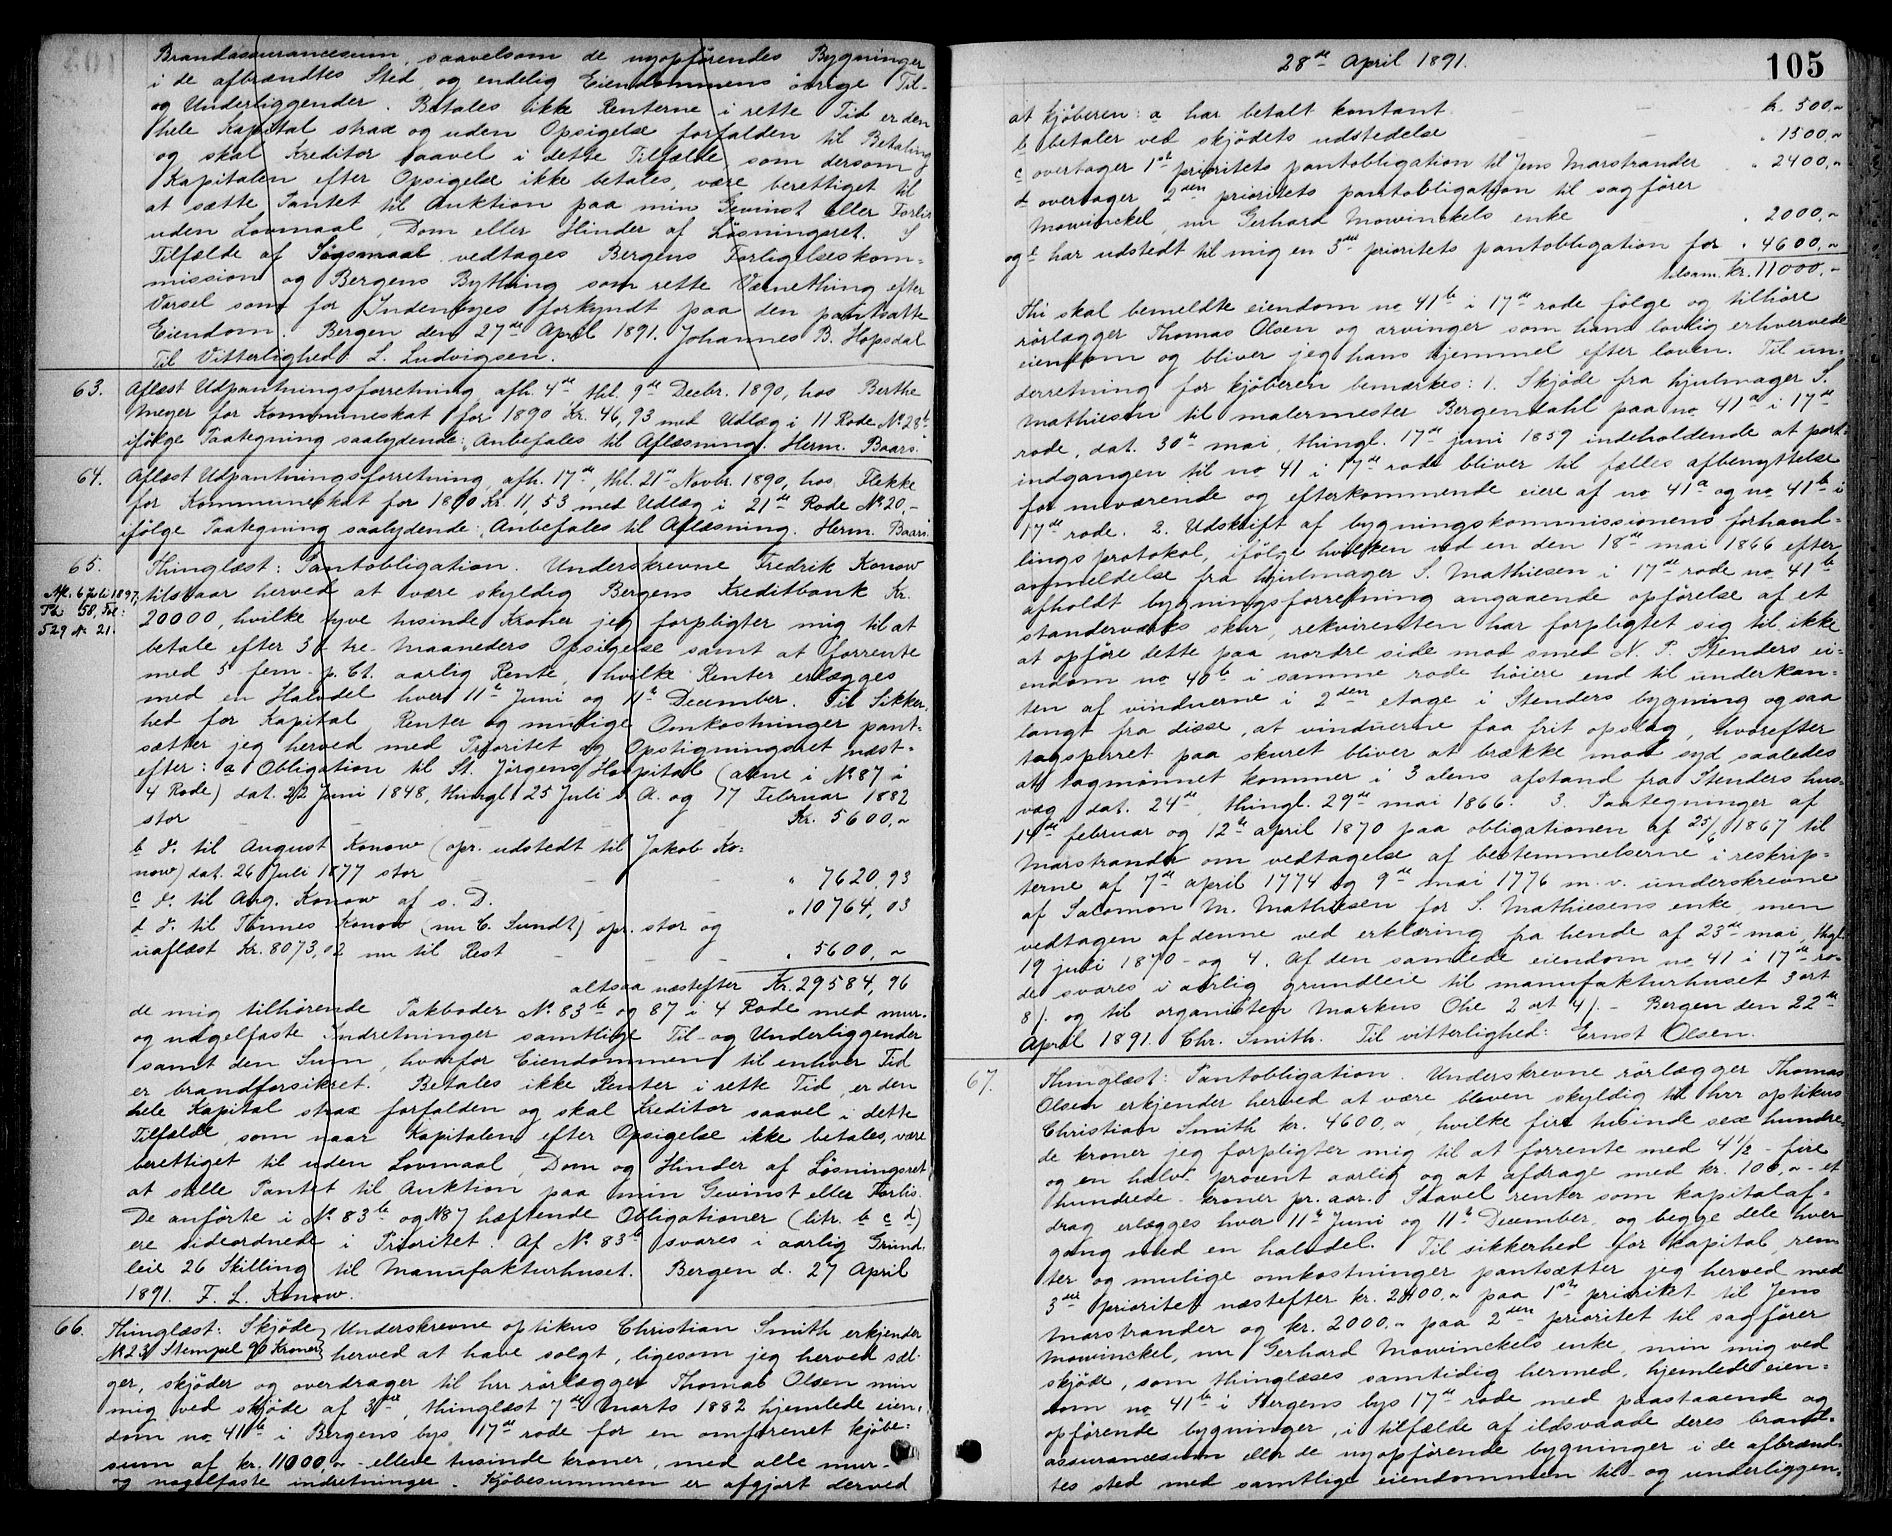 Brandassurancesum, saavelsom de nyopførendes Bygninger
i de afbrændtes Sted, og endelig Eiendommens øvrige Til-
og Underliggender. Betales ikke Renterne i rette Tid er den
hele Kapital strax og uden Opsigelse forfalden til Betaling
og skal Kreditor saavel i dette Tilfælde som dersom
Kapitalen efter Opsigelse ikke betales, være berettiget til
at sætte Pantet til Auktion paa min Gevinst eller Forlis
uden Lovmaal, Dom eller Hinder af Løsningsret. I
Tilfælde af Søgsmaal vedtages Bergens Forligelseskom-
mission og Bergens Bything som rette Værnething efter
Varsel som for Indenbyes forkyndt paa den pantsatte
Eiendom. Bergen den 27de April 1891. Johannes B. Hopsdal
Til Vitterlighed L. Ludvigsen.
63. Aflæst Udpantningsforretning afh. 4de, thl. 9de Decbr. 1890, hos Berthe
Meyer for Kommuneskat for 1890 Kr. 46,93 med Udlæg i 11 Rode No 28b
ifølge Paategning saalydende: Anbefales til Aflæsning. Herm. Baars.
64. Aflæst Udpantningsforretning, afh. 17de, thl. 21de Novbr. 1890, hos Flekke
for Kommuneskat for 1890 Kr. 11,53 med Udlæg i 21de Rode No 20,-
ifølge Paategning saalydende: Anbefales til Aflæsning. Herm. Baars.
65. Thinglæst: Pantobligation. Underskrevne Fredrik Konow
Afl. 6 Juli 1897,
Pb. 58, Fol:
529 No 21.
tilstaar herved at være skyldig Bergens Kreditbank Kr.
20000, hvilke tyve tusinde Kroner jeg forpligter mig til at
betale efter 3 - tre - Maaneders Opsigelse samt at forrente
med 5 fem - p. Ct. aarlig Rente, hvilke Renter erlægges
med en Halvdel hver 11te Juni og 11te December. Til Sikker-
hed for Kapital, Renter og mulige Omkostninger pant-
sætter jeg herved med Prioritet og Opstigningsret næst-
efter: a Obligation til St. Jørgens Hospital (alene i No 87 i
4 Rode) dat. 22 Juni 1848, thingl. 25 Juli s. A. og 17 Februar 1882
stor - Kr. 5600,"
b do. til August Konow (opr. udstedt til Jakob Ko-
now) dat. 26 Juli 1877 stor - " 7620,93
c do. til Aug. Konow af s. D. - " 10764,03
d do. til Tønnes Konow (nu C. Sundt) opr. stor og
uaflæst Kr. 8073,02 nu til Rest - " 5600,"
altsaa næstefter Kr. 29584,96
de mig tilhørende Pakboder No 83b og 87 i 4 Rode med mur-
og nagelfaste Indretninger samtlige Til- og Underliggender
samt den Sum, hvorfor Eiendommen til enhver Tid
er brandforsikret. Betales ikke Renter i rette Tid, er den
hele Kapital strax forfalden og skal Kreditor saavel i dette
Tilfælde, som naar Kapitalen efter Opsigelse ikke betales, være
berettiget til uden Lovmaal, Dom og Hinder af Løsningsret
at stille Pantet til Auktion paa min Gevinst eller Forlis.
De anførte i No 83b og No 87 hæftende Obligationer (litr. b c d)
ere sideordnede i Prioritet. Af No 83b svares i aarlig Grund-
leie 26 Skilling til Manufakturhuset. Bergen d. 27 April
1891. F. L. Konow.
66. Thinglæst: Skjøde Underskrevne optikus Christian Smith erkjender
No 23/ Stempel 90 Kroner herved at have solgt, ligesom jeg herved sæl-
ger, skjøder og overdrager til hrr rørlægger Thomas Olsen min
mig ved skjøde af 3die, thinglæst 7de Marts 1882 hjemlede eien-
dom no 41b i Bergens bys 17de rode for en omforenet kjøbe-
sum af kr. 11000," - elleve tusinde kroner, med alle mur-
og nagelfaste indretninger. Kjøbesummen er afgjort derved
28de April 1891.
105
at kjøberen: a har betalt kontant - kr. 500,"
b betaler ved skjødets udstedelse - " 1500,"
c overtager 1ste prioritets pantobligation til Jens Marstrander " 2400,"
d overtager 2den prioritets pantobligation til sagfører
Mowinckel, nu Gerhard Mowinckels enke " 2000,"
og e har udstedt til mig en 3die prioritets pantobligation for " 4600,"
tilsam. kr. 11000,"
Thi skal bemeldte eiendom no 41b i 17de rode følge og tilhøre
rørlægger Thomas Olsen og arvinger som hans lovlig erhvervede
eiendom og bliver jeg hans hjemmel efter loven. Til un-
derretning for kjøberen bemærkes: 1. Skjøde fra hjulmager S.
Mathiesen til malermester Bergendahl paa no 41a i 17de
rode, dat. 30te mai, thingl. 17de juni 1859 indeholdende at port-
indgangen til no 41 i 17de rode bliver til fælles afbenyttelse
for nuværende og efterkommende eiere af no 41a og no 41b i
17de rode. 2. Udskrift af bygningskommissionens forhand-
lingsprotokol, ifølge hvilken ved en den 18de mai 1866 efter
anmeldelse fra hjulmager S. Mathiesen i 17de rode no 41b
afholdt bygningsforretning angaaende opførelse af et
standerværks skur, rekvirenten har forpligtet sig til ikke
at opføre dette paa nordre side mod smed N. P. Stenders ei-
endom no 40b i samme rode høiere end til underkan-
ten af vinduerne i 2den etage i Stenders bygning og saa
langt fra disse, at vinduerne faa frit opslag, hvorefter
tagsperret paa skuret bliver at brække mod syd saaledes
at tagmønnet kommer i 3 alens afstand fra Stenders hus-
væg dat. 24de, thingl. 29de mai 1866. 3. Paategninger af
14de februar og 12te april 1870 paa obligationen af 25/6 1867 til
Marstrander om vedtagelse af bestemmelserne i reskrip-
terne af 7de april 1774 og 9de mai 1776 m. v. underskrevne
af Salomon M. Mathiesen for S. Mathiesens enke, men
vedtagen af denne ved erklæring fra hende af 23de mai, thgl.
19 juli 1870 - og 4. Af den samlede eiendom no 41 i 17de ro-
de svares i aarlig grundleie til manufakturhuset 3 ort
8/. og til organisten Markus Ohe 2 ort 4/. - Bergen den 22de
April 1891. Chr. Smith. Til vitterlighed: Ernst Olsen.
67. Thinglæst: Pantobligation. Underskrevne rørlægger Thomas
Olsen erkjender herved at være bleven skyldig til hrr optikus
Christian Smith kr. 4600,", hvilke fire tusinde sex hundre-
de kroner jeg forpligter mig til at forrente med 4 1/2 - fire
og en halv - procent aarlig og at afdrage med kr. 100," - et
hundrede - kroner pr. aar. Saavel renter som kapitalaf-
drag erlægges hver 11te Juni og 11te December, og begge dele hver
gang med en halvdel. Til sikkerhed for kapital, ren-
ter og mulige omkostninger pantsætter jeg herved med
3die prioritet næstefter kr. 2400," paa 1ste prioritet til Jens
Marstrander og kr. 2000," paa 2den prioritet til sagfører
Mowinckel, nu Gerhard Mowinckels enke, min mig ved
skjøde, som thinglæses samtidig hermed, hjemlede eien-
dom no 41b i Bergens bys 17de rode med paastaaende og
opførende bygninger, i tilfælde af ildsvaade deres brand-
assurancesum eller de nyopførende bygninger i de afbrænd-
tes sted med samtlige eiendommen til- og underliggen-